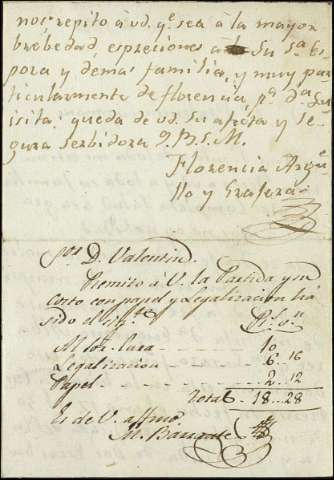 nos, repito á vd. qe. sea á la mayor
brebedad, espreciones á su Sa. Es
posa y demas familia, y muy par
ticularmente de florencia, pa. da. Lui
sita. queda de vd. su afecta y se
gura serbidora Q.B.S.M.
Florencia Argüe
llo y Graferas
D. Valentin.
Remito á V. la Partida y su
costo con papel y Legalizacion há
sido el sigte. Rs. vn.
Al Sor. Cura 10
Legalizacion 6.. 16
Papel 2.. 12
Total 18.. 28
Es de V. affmo.
M.